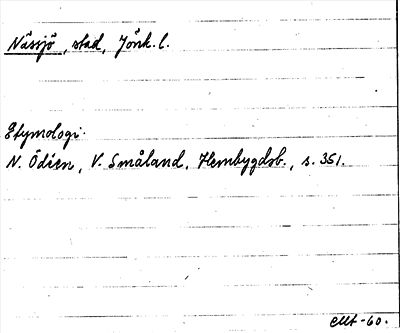 Nässjö, stad, Jönk. l.
Etymologi.
N. Ödéen, V. Småland, Hembygdsb., s. 351.
-60.